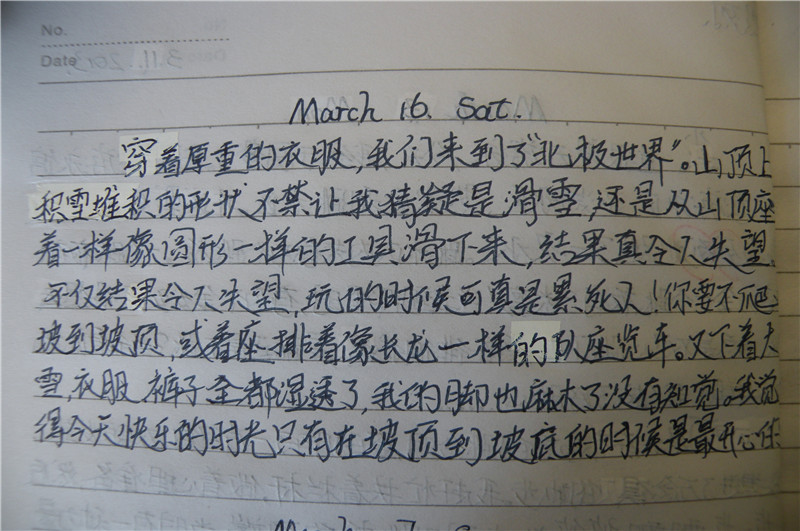 No.
Date
March 16. Sat.
穿着厚重的衣服,我们来到了"北极世界"。山顶上
积雪堆积的形状不禁让我猜疑是滑雪,还是从山顶座
着一样像圆形一样的工具滑下来,结果真令人失望。
不仅结果令人失望,玩的时候可真是累死人!你要不爬
坡到坡顶,或着座排着像长龙一样的队座览车。又下着大
雪,衣服裤子全都湿透了,我的脚也麻木了没有知觉。我觉
得今天快乐的时光只有在坡顶到坡底的时候是最开心的